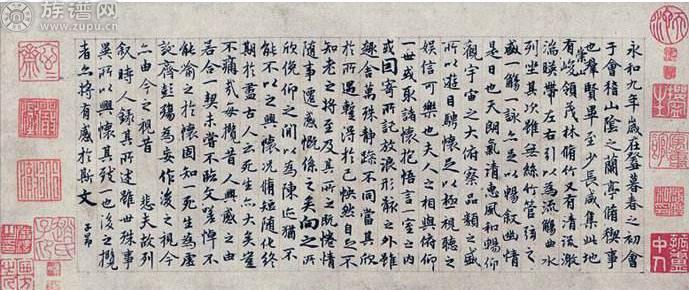 族谱网
www.zupu.cn
永和九年歲在癸丑暮春之初會
于會稽山陰之蘭亭脩稧事
也羣賢畢至少長咸集此地
有崇山峻領茂林脩竹又有清流激
湍暎帶左右引以為流觴曲水
列坐其次雖無絲竹管弦之
盛一觴一詠亦足以暢敘幽情
是日也天朗氣清惠風和暢仰
觀宇宙之大俯察品類之盛
所以遊目騁懷足以極視聽之
娛信可樂也夫人之相與俯仰
一世或取諸懷抱悟言一室之內
或因寄所託放浪形骸之外雖
趣舍萬殊靜躁不同當其欣
於所遇暫得於己怏然自足不
知老之將至及其所之既惓情
隨事遷感慨係之矣向之所
欣俛仰之間以為陳迹猶不
能不以之興懷況脩短隨化終
期於盡古人云死生亦大矣豈
不痛哉每攬昔人興感之由
若合一契未嘗不臨文嗟悼不
能喻之於懷固知一死生為虛
誕齊彭殤為妄作後之視今
亦由今之視昔 悲夫故列
敘時人錄其所述雖世殊事
異所以興懷其致一也後之攬
者亦將有感於斯文
子昂